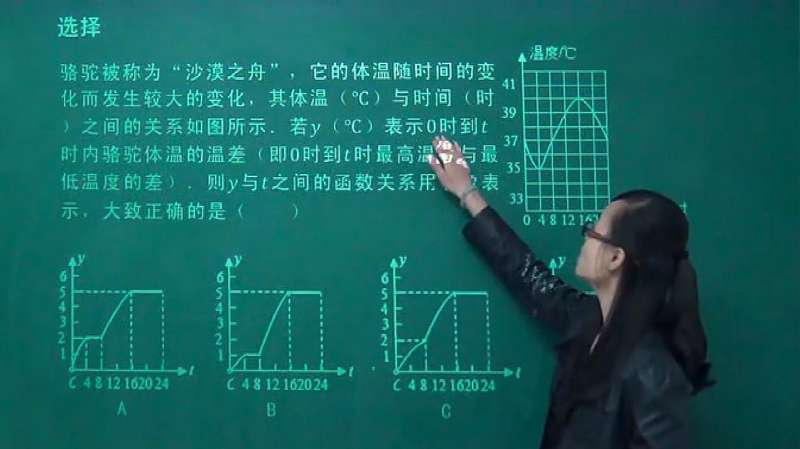 选择
骆驼被称为“沙漠之舟”，它的体温随时间的变
化而发生较大的变化，其体温（℃）与时间（时
）之间的关系如图所示．若y（℃）表示0时到t
时内骆驼体温的温差（即0时到t时最高温 与最
低温度的差）．则y与t之间的函数关系用 表
示，大致正确的是（ ）
温度/℃
41
39
37
35
33
0 4 8 12 16 20
y
6
5
4
3
2
1
4 8 12 16 20 24 t
A
y
6
5
4
3
2
1
4 8 12 16 20 24 t
B
y
6
5
4
3
2
1
4 8 12 16 20 24 t
C
y